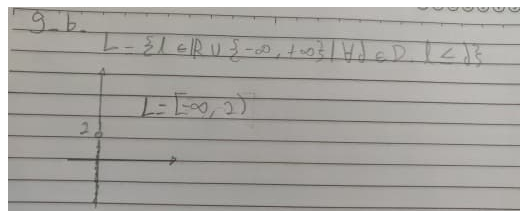 9-b.
L = {l ∈ ℝ ∪ {-∞, +∞} | ∀d ∈ D. l < d}
L = [-∞, 2)
2